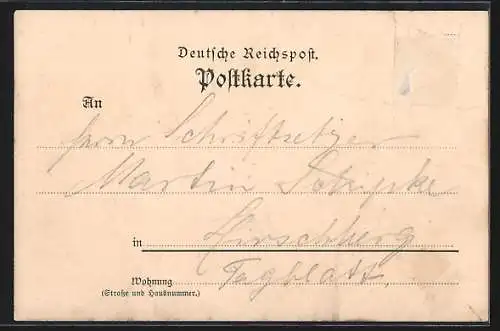 Deutsche Reichspost.
Postkarte.
An
Herrn Schriftsetzer
Martin
in Hirschberg
Tagblatt.
Wohnung
(Straße und Hausnummer.)